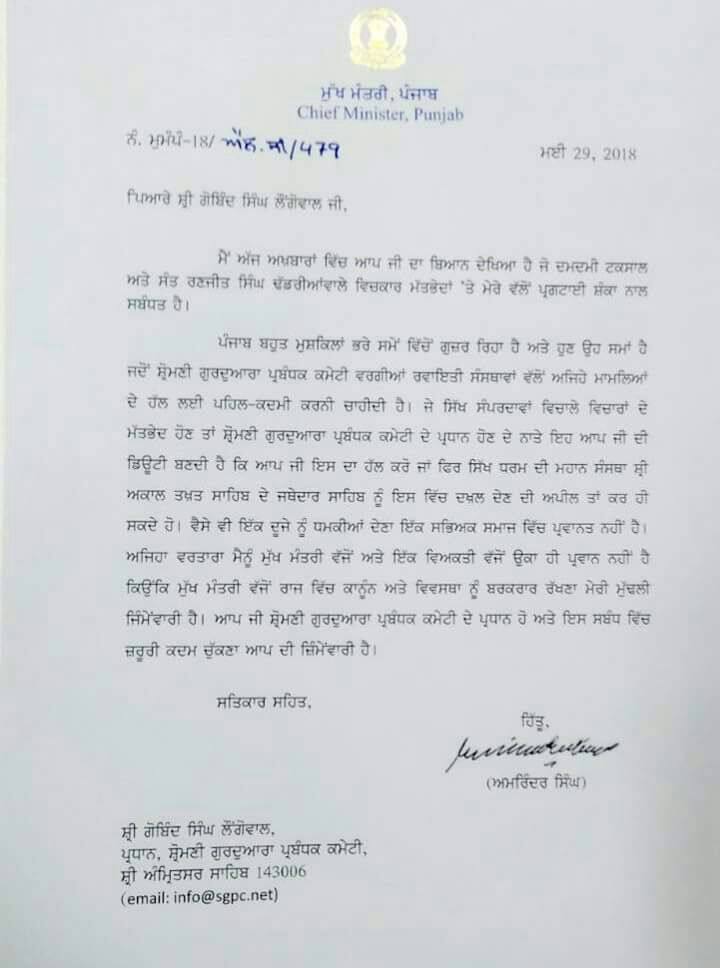 ਮੁੱਖ ਮੰਤਰੀ, ਪੰਜਾਬ
Chief Minister, Punjab
ਨੰ. ਮੁਮੰਪੰ-18/ ਐਲ.ਸੀ/479
ਮਈ 29, 2018
ਪਿਆਰੇ ਸ਼੍ਰੀ ਗੋਬਿੰਦ ਸਿੰਘ ਲੌਂਗੋਵਾਲ ਜੀ,
ਮੈਂ ਅੱਜ ਅਖ਼ਬਾਰਾਂ ਵਿੱਚ ਆਪ ਜੀ ਦਾ ਬਿਆਨ ਦੇਖਿਆ ਹੈ ਜੋ ਦਮਦਮੀ ਟਕਸਾਲ
ਅਤੇ ਸੰਤ ਰਣਜੀਤ ਸਿੰਘ ਢੱਡਰੀਆਂਵਾਲੇ ਵਿਚਕਾਰ ਮੱਤਭੇਦਾਂ 'ਤੇ ਮੇਰੇ ਵੱਲੋਂ ਪ੍ਰਗਟਾਈ ਸ਼ੰਕਾ ਨਾਲ
ਸਬੰਧਤ ਹੈ।
ਪੰਜਾਬ ਬਹੁਤ ਮੁਸ਼ਕਿਲਾਂ ਭਰੇ ਸਮੇਂ ਵਿੱਚੋਂ ਗੁਜ਼ਰ ਰਿਹਾ ਹੈ ਅਤੇ ਹੁਣ ਉਹ ਸਮਾਂ ਹੈ
ਜਦੋਂ ਸ਼੍ਰੋਮਣੀ ਗੁਰਦੁਆਰਾ ਪ੍ਰਬੰਧਕ ਕਮੇਟੀ ਵਰਗੀਆਂ ਰਵਾਇਤੀ ਸੰਸਥਾਵਾਂ ਵੱਲੋਂ ਅਜਿਹੇ ਮਾਮਲਿਆਂ
ਦੇ ਹੱਲ ਲਈ ਪਹਿਲ-ਕਦਮੀ ਕਰਨੀ ਚਾਹੀਦੀ ਹੈ। ਜੇ ਸਿੱਖ ਸੰਪਰਦਾਵਾਂ ਵਿਚਾਲੇ ਵਿਚਾਰਾਂ ਦੇ
ਮੱਤਭੇਦ ਹੋਣ ਤਾਂ ਸ਼੍ਰੋਮਣੀ ਗੁਰਦੁਆਰਾ ਪ੍ਰਬੰਧਕ ਕਮੇਟੀ ਦੇ ਪ੍ਰਧਾਨ ਹੋਣ ਦੇ ਨਾਤੇ ਇਹ ਆਪ ਜੀ ਦੀ
ਡਿਊਟੀ ਬਣਦੀ ਹੈ ਕਿ ਆਪ ਜੀ ਇਸ ਦਾ ਹੱਲ ਕਰੋ ਜਾਂ ਫਿਰ ਸਿੱਖ ਧਰਮ ਦੀ ਮਹਾਨ ਸੰਸਥਾ ਸ਼੍ਰੀ
ਅਕਾਲ ਤਖ਼ਤ ਸਾਹਿਬ ਦੇ ਜਥੇਦਾਰ ਸਾਹਿਬ ਨੂੰ ਇਸ ਵਿੱਚ ਦਖ਼ਲ ਦੇਣ ਦੀ ਅਪੀਲ ਤਾਂ ਕਰ ਹੀ
ਸਕਦੇ ਹੋ। ਵੈਸੇ ਵੀ ਇੱਕ ਦੂਜੇ ਨੂੰ ਧਮਕੀਆਂ ਦੇਣਾ ਇੱਕ ਸਭਿਅਕ ਸਮਾਜ ਵਿੱਚ ਪ੍ਰਵਾਨਤ ਨਹੀਂ ਹੈ।
ਅਜਿਹਾ ਵਰਤਾਰਾ ਮੈਨੂੰ ਮੁੱਖ ਮੰਤਰੀ ਵੱਜੋਂ ਅਤੇ ਇੱਕ ਵਿਅਕਤੀ ਵੱਜੋਂ ਉਕਾ ਹੀ ਪ੍ਰਵਾਨ ਨਹੀਂ ਹੈ
ਕਿਉਂਕਿ ਮੁੱਖ ਮੰਤਰੀ ਵੱਜੋਂ ਰਾਜ ਵਿੱਚ ਕਾਨੂੰਨ ਅਤੇ ਵਿਵਸਥਾ ਨੂੰ ਬਰਕਰਾਰ ਰੱਖਣਾ ਮੇਰੀ ਮੁੱਢਲੀ
ਜਿੰਮੇਂਵਾਰੀ ਹੈ। ਆਪ ਜੀ ਸ਼੍ਰੋਮਣੀ ਗੁਰਦੁਆਰਾ ਪ੍ਰਬੰਧਕ ਕਮੇਟੀ ਦੇ ਪ੍ਰਧਾਨ ਹੋ ਅਤੇ ਇਸ ਸਬੰਧ ਵਿੱਚ
ਜ਼ਰੂਰੀ ਕਦਮ ਚੁੱਕਣਾ ਆਪ ਦੀ ਜ਼ਿੰਮੇਂਵਾਰੀ ਹੈ।
ਸਤਿਕਾਰ ਸਹਿਤ,
ਹਿੱਤੂ,
(ਅਮਰਿੰਦਰ ਸਿੰਘ)
ਸ਼੍ਰੀ ਗੋਬਿੰਦ ਸਿੰਘ ਲੌਂਗੋਵਾਲ,
ਪ੍ਰਧਾਨ, ਸ਼੍ਰੋਮਣੀ ਗੁਰਦੁਆਰਾ ਪ੍ਰਬੰਧਕ ਕਮੇਟੀ,
ਸ਼੍ਰੀ ਅੰਮ੍ਰਿਤਸਰ ਸਾਹਿਬ 143006
(email: info@sgpc.net)